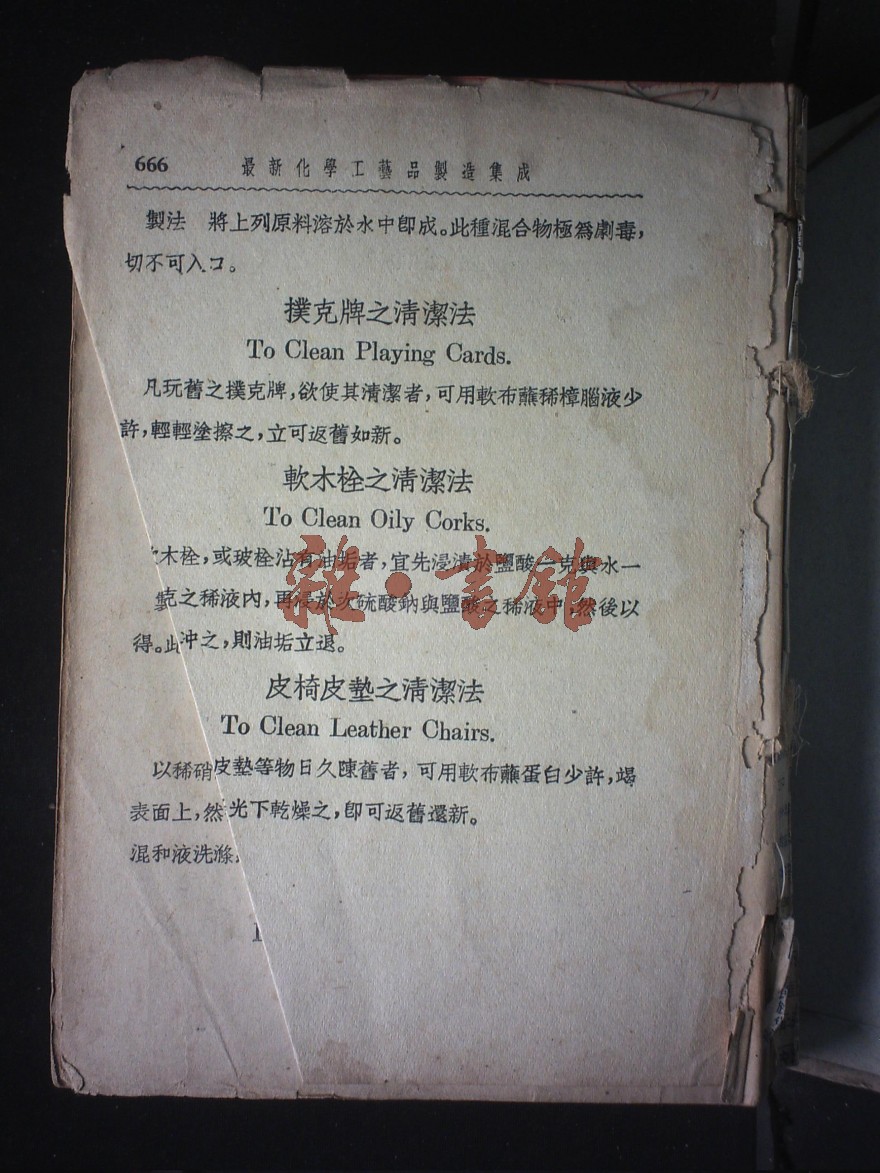 666 最新化學工藝品製造集成
製法 將上列原料溶於水中卽成。此種混合物極爲劇毒,
切不可入口。
撲克牌之淸潔法
To Clean Playing Cards.
凡玩舊之撲克牌,欲使其淸潔者,可用軟布蘸稀樟腦液少
許,輕輕塗擦之,立可返舊如新。
軟木栓之淸潔法
To Clean Oily Corks.
木栓,或玻栓沾有油垢者,宜先浸漬於鹽酸一克與水一
克之稀液內,再浸於次硫酸鈉與鹽酸之稀液中,然後以
得。此沖之,則油垢立退。
皮椅皮墊之淸潔法
To Clean Leather Chairs.
以稀硝皮墊等物日久陳舊者,可用軟布蘸蛋白少許,塌
表面上,然光下乾燥之,卽可返舊還新。
混和液洗滌
雜·書館